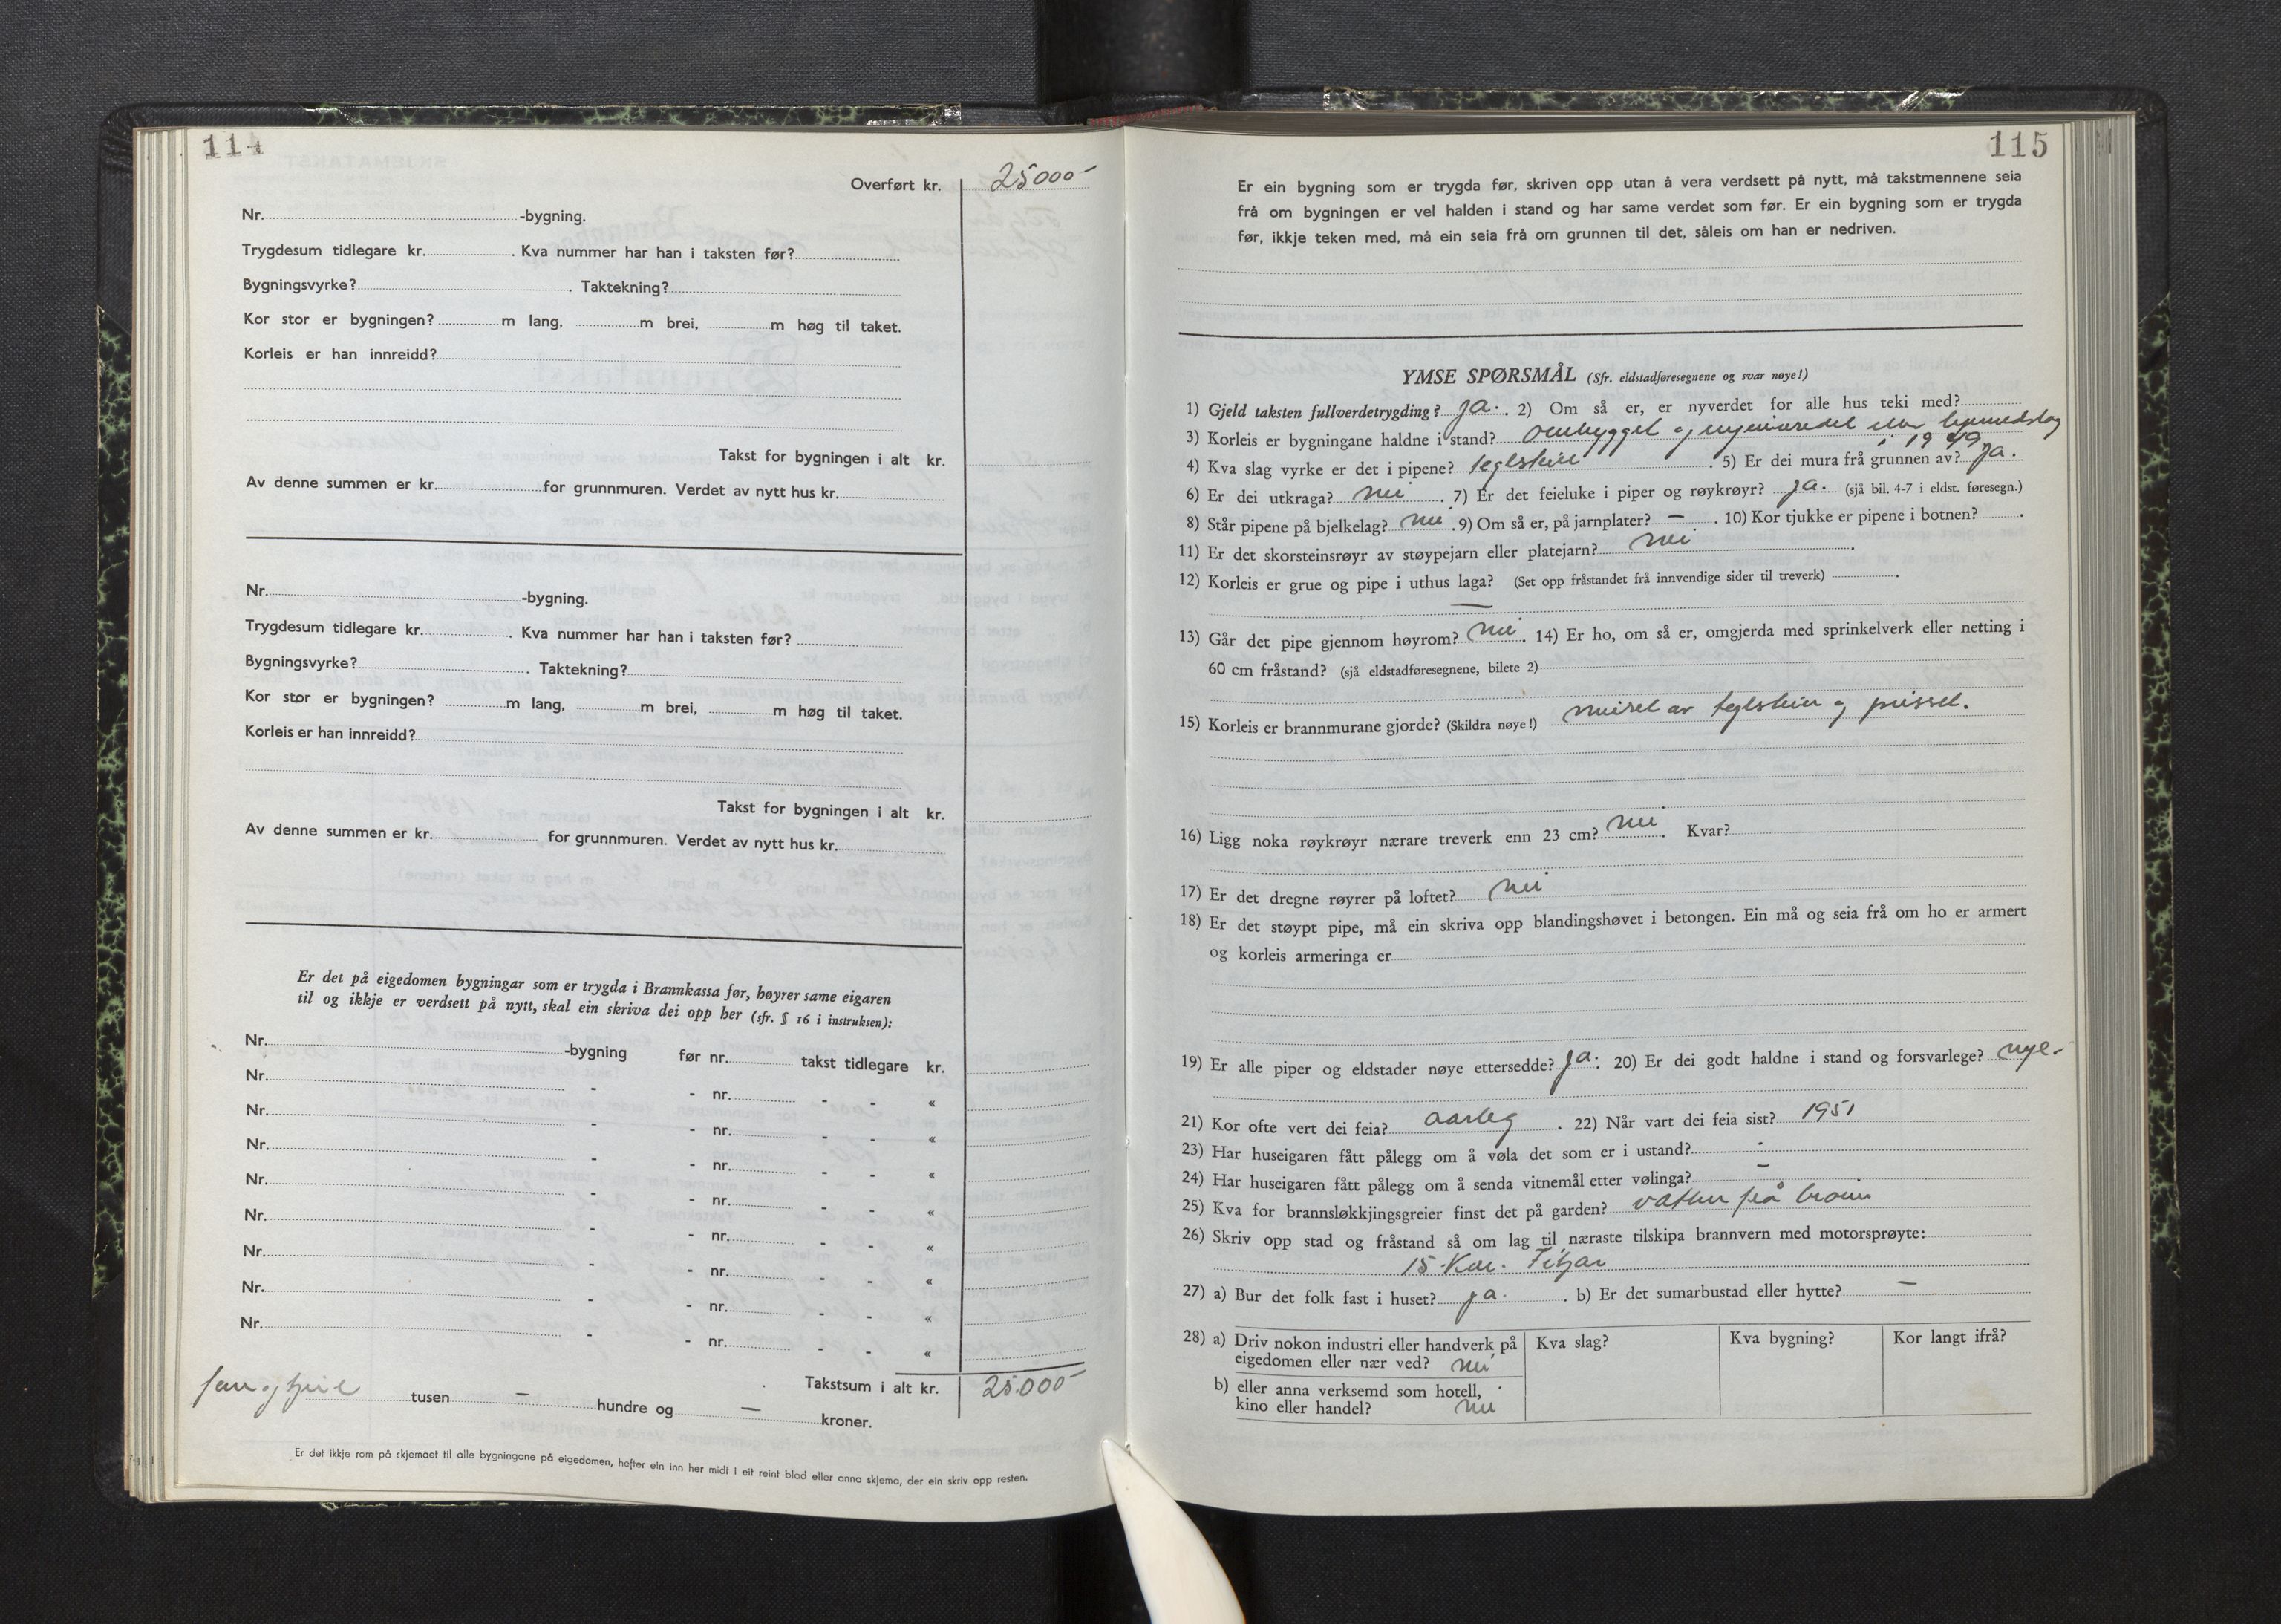 114
Overført kr. 25000-
Nr. -bygning.
Trygdesum tidlegare kr. . Kva nummer har han i taksten før?
Bygningsvyrke? . Taktekning?
Kor stor er bygningen? m lang, m brei, m høg til taket.
Korleis er han innreidd?
Takst for bygningen i alt kr.
Av denne summen er kr. for grunnmuren. Verdet av nytt hus kr.
Nr. -bygning.
Trygdesum tidlegare kr. . Kva nummer har han i taksten før?
Bygningsvyrke? . Taktekning?
Kor stor er bygningen? m lang, m brei, m høg til taket.
Korleis er han innreidd?
Takst for bygningen i alt kr.
Av denne summen er kr. for grunnmuren. Verdet av nytt hus kr.
Er det på eigedomen bygningar som er trygda i Brannkassa før, høyrer same eigaren
til og ikkje er verdsett på nytt, skal ein skriva dei opp her (sfr. § 16 i instruksen):
Nr. -bygning før nr. takst tidlegare kr.
Nr. - - nr. - - «
Nr. - - nr. - - «
Nr. - - nr. - - «
Nr. - - nr. - - «
Nr. - - nr. - - «
Nr. - - nr. - - «
Nr. - - nr. - - «
Nr. - - nr. - - «
Takstsum i alt kr. 25.000-
tusen — hundre og — kroner.
Er det ikkje rom på skjemaet til alle bygningane på eigedomen, hefter ein inn her midt i eit reint blad eller anna skjema, der ein skriv opp resten.
115
Er ein bygning som er trygda før, skriven opp utan å vera verdsett på nytt, må takstmennene seia
frå om bygningen er vel halden i stand og har same verdet som før. Er ein bygning som er trygda
før, ikkje teken med, må ein seia frå om grunnen til det, såleis om han er nedriven.
YMSE SPØRSMÅL (Sfr. eldstadføresegnene og svar nøye!)
1) Gjeld taksten fullverdetrygding? ja. . 2) Om så er, er nyverdet for alle hus teki med?
3) Korleis er bygningane haldne i stand? ombygget og
i 1949
4) Kva slag vyrke er det i pipene? teglstein . 5) Er dei mura frå grunnen av? ja.
6) Er dei utkraga? nei . 7) Er det feieluke i piper og røykrøyr? ja. (sjå bil. 4-7 i eldst. føresegn.)
8) Står pipene på bjelkelag? nei . 9) Om så er, på jarnplater? — . 10) Kor tjukke er pipene i botnen? .
11) Er det skorsteinsrøyr av støypejarn eller platejarn? nei .
12) Korleis er grue og pipe i uthus laga? (Set opp fråstandet frå innvendige sider til treverk) .
—
13) Går det pipe gjennom høyrom? nei . 14) Er ho, om så er, omgjerda med sprinkelverk eller netting i
60 cm fråstand? (sjå eldstadføresegnene, bilete 2)
15) Korleis er brannmurane gjorde? (Skildra nøye!) muret av teglstein og pusset.
16) Ligg noka røykrøyr nærare treverk enn 23 cm? nei . Kvar?
17) Er det dregne røyrer på loftet? nei
18) Er det støypt pipe, må ein skriva opp blandingshøvet i betongen. Ein må og seia frå om ho er armert
og korleis armeringa er
19) Er alle piper og eldstader nøye ettersedde? ja. 20) Er dei godt haldne i stand og forsvarlege? nye-
21) Kor ofte vert dei feia? aarleg . 22) Når vart dei feia sist? 1951
23) Har huseigaren fått pålegg om å vøla det som er i ustand? -
24) Har huseigaren fått pålegg om å senda vitnemål etter vølinga? —
25) Kva for brannsløkkjingsgreier finst det på garden? vatten frå brønn
26) Skriv opp stad og fråstand så om lag til næraste tilskipa brannvern med motorsprøyte:
15 Km. Fitjar
27) a) Bur det folk fast i huset? ja. . b) Er det sumarbustad eller hytte? —
28) a) Driv nokon industri eller handverk på
eigedomen eller nær ved? nei
Kva slag? Kva bygning? Kor langt ifrå?
b) eller anna verksemd som hotell,
kino eller handel? nei